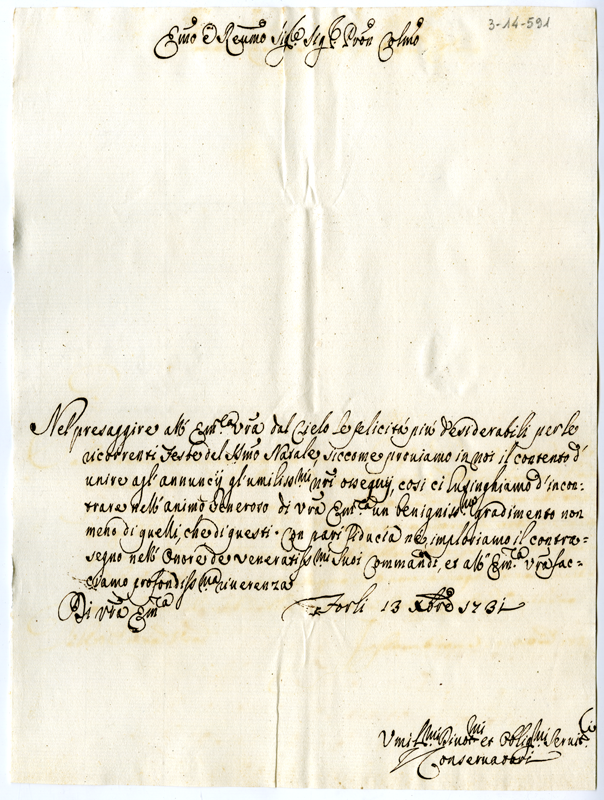 3-14-591
Emo e Revmo Sigr Sigr Pron Colmo
Nel presaggire all' Emza Vra dal Cielo le felicità più desiderabili per le
ricorrenti Feste del SSmo Natale, siccome proviamo in noi il contento d'
unire agl' annuncij gl' umilissmi nri ossequij, così ci lusinghiamo d' incon-
trare nell' animo Generoso di Vra Emza un benignissmo gradimento non
meno di quelli, che di questi. Con pari fiducia ne imploriamo il contra-
segno nell' Onore de veneratissmi Suoi Commandi, et all' Emza Vra fac-
ciamo profondissma riverenza
Di Vra Emza Forlì 13 Xbre 1731
Umilmi Divotmi et Obligmi Servit.ri
Conservatori